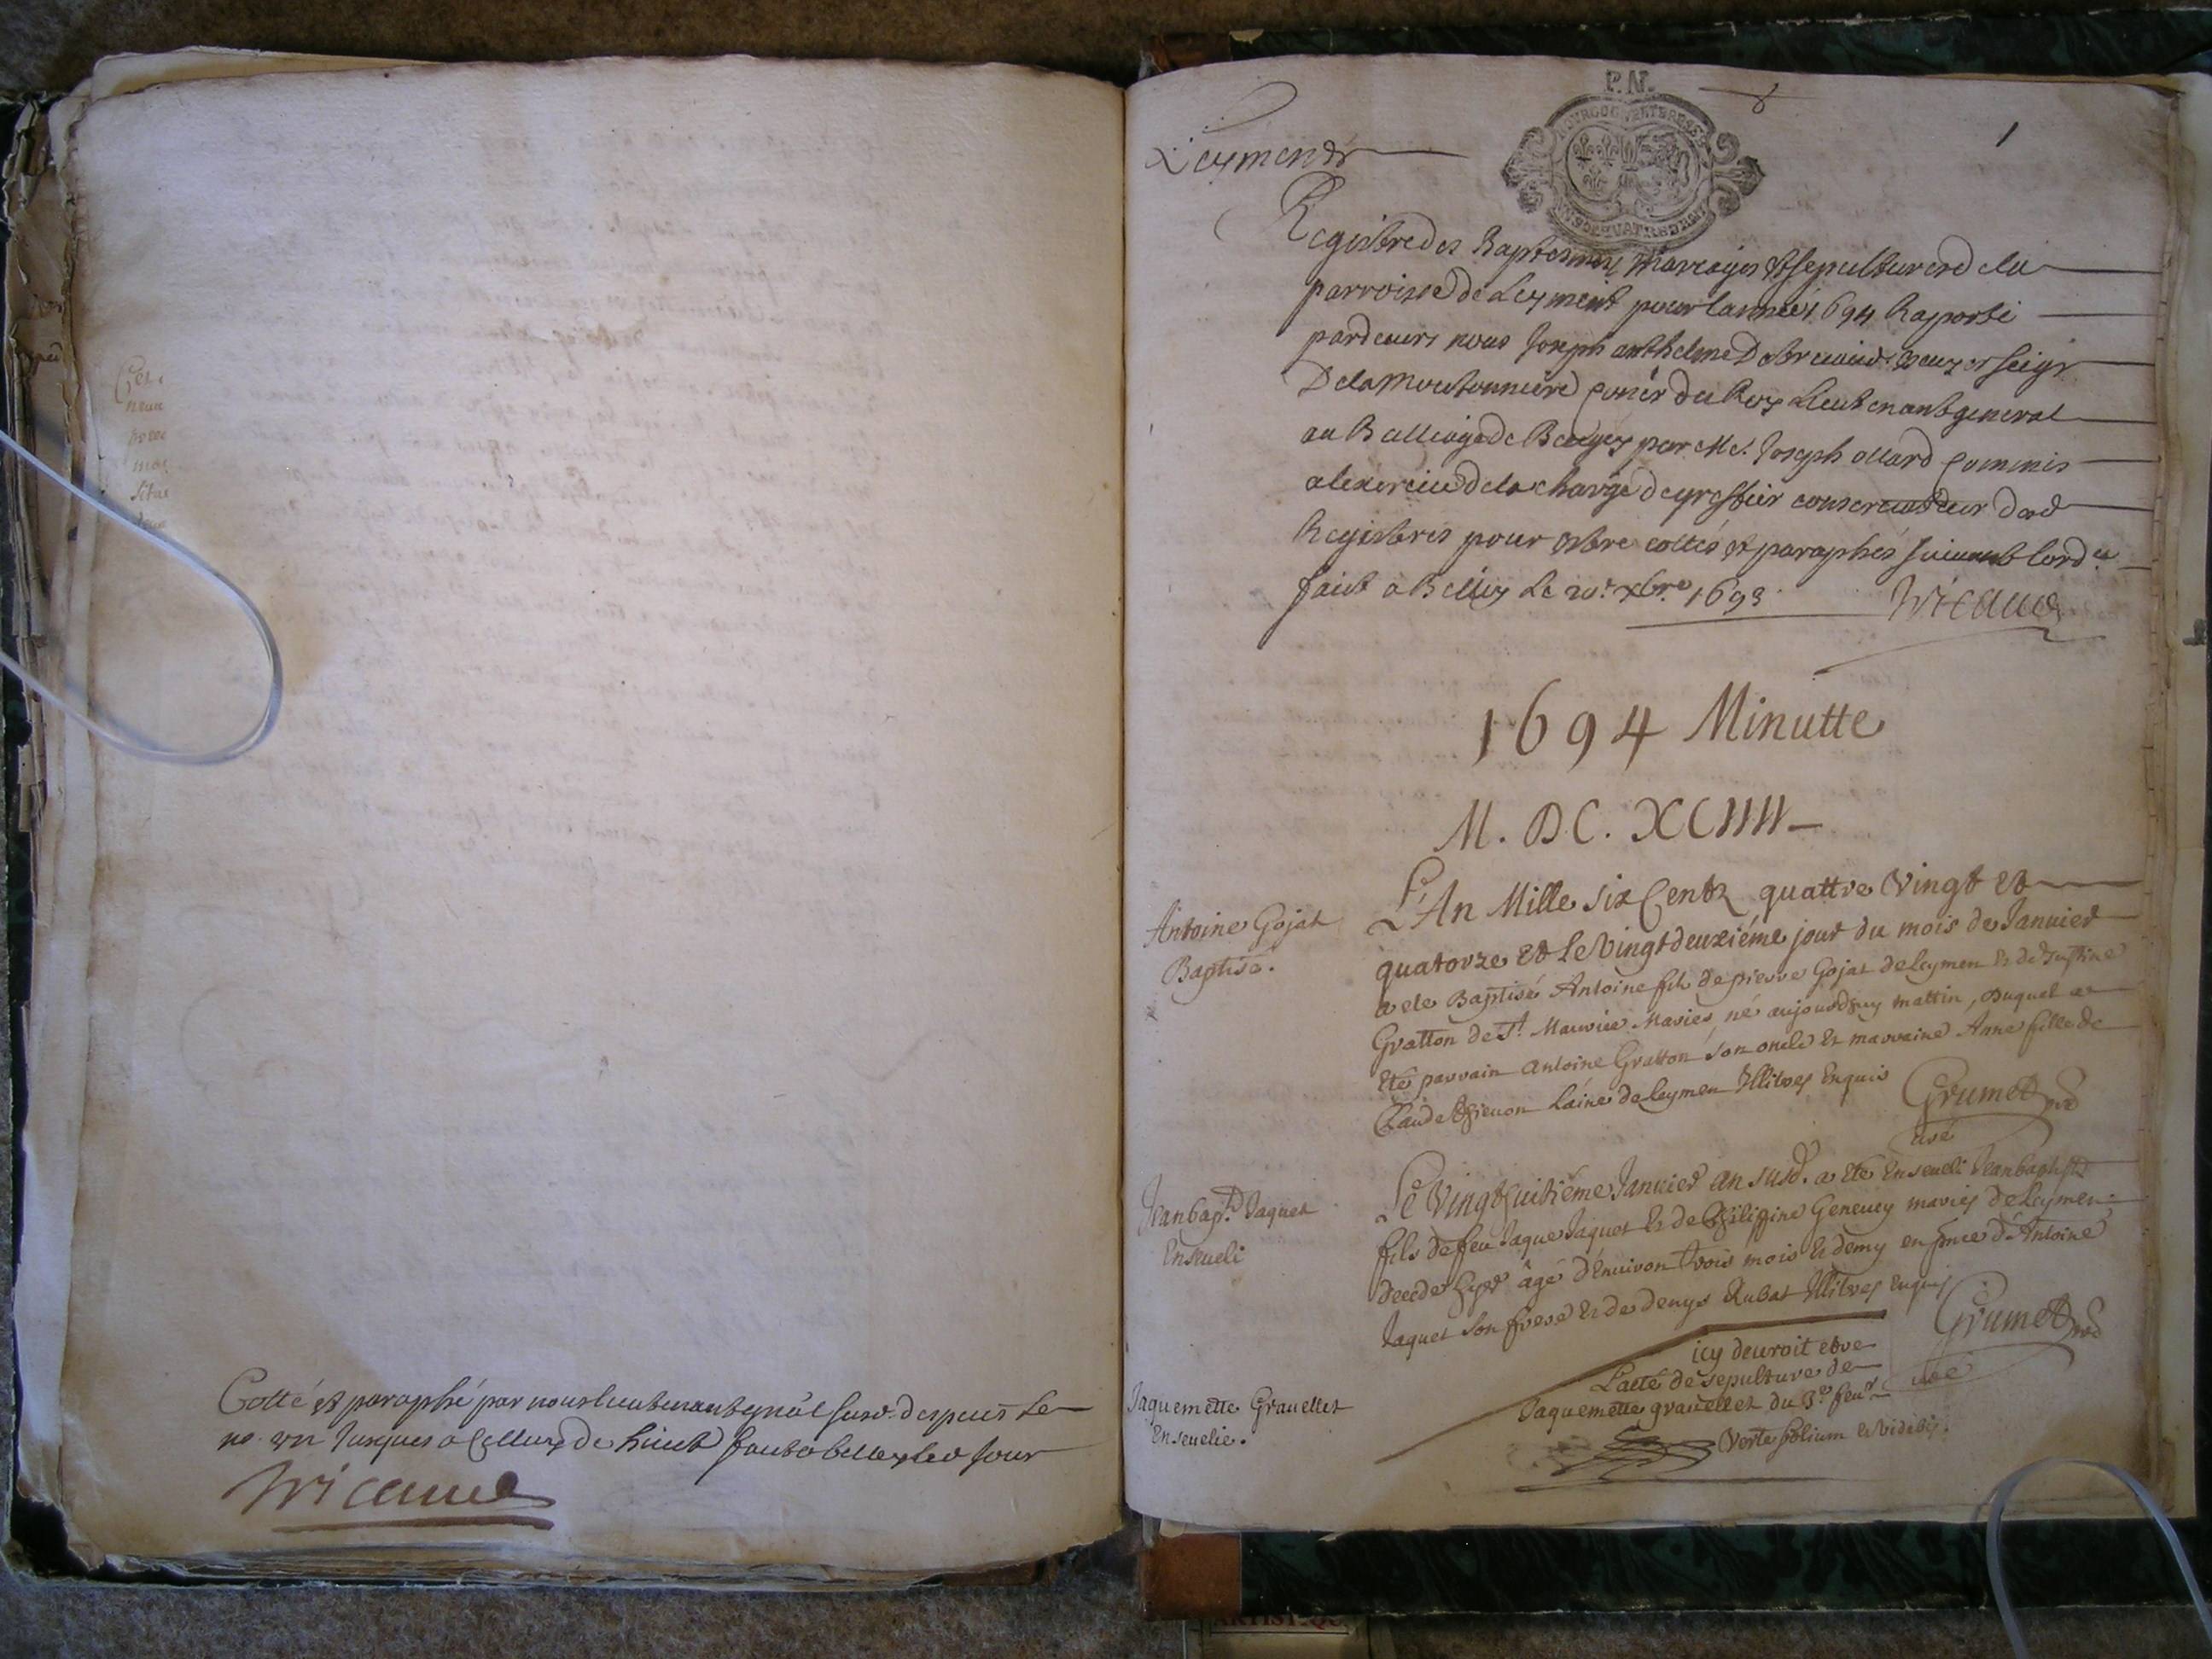 Cotté et paraphé par nous lieutenant gnâl susd. despuis le
no. un Jusques a Celluy de huict faict a belley led Jour
P.N.
1
Leyment
Registre des Baptesmes mariages et sepultures de la
parroisse de Leyment pour lannée 1694 Raporté
pardevers nous Joseph anthelme seigr
De la Moutonniere Coner du Roy Lieutenant general
au Balliage de Beugey par Me. Joseph ollard Commis
a lexercice de la charge de greffier conservateur desd
Registres pour estre cottés et paraphés suivant lord.ce
faict a Belley Le 20e. xbre. 1693
1694 Minutte
M. DC. XCIIII
Antoine Gojat
Baptisé.
L'An Mille six Centz quattre Vingt et
quatorze et le Vingtdeuxiéme jour du mois de Januier
a ete Baptisé Antoine fils de pierre Gojat de leymen et de Justine
Gratton de St. Maurice Mariés, né aujourdhuy mattin, Duquel a
Eté parrain Antoine Gratton son oncle et marraine Anne fille de
Claude Thieuon l'aine de leymen Illitres Enquis
Grumet
curé
Jeanbapt. Jaquet
Enseueli
Le Vingthuitiéme Januier an susd. a eté Enseueli Jeanbaptiste
fils de feu Jaque Jaquet et de Philippine Geneuey mariés de Leymen
decedé hyer âgé d'enuiron trois mois et demy en pnce d'Antoine
Jaquet son frere et de denys Rubat Illitres Enquis
Grumet
curé
Jaquemette Grauellet
Enseuelie.
icy deuroit etre
L'acte de sepulture de
Jaquemette grauellet du 3e feur
Verte folium et videbis.